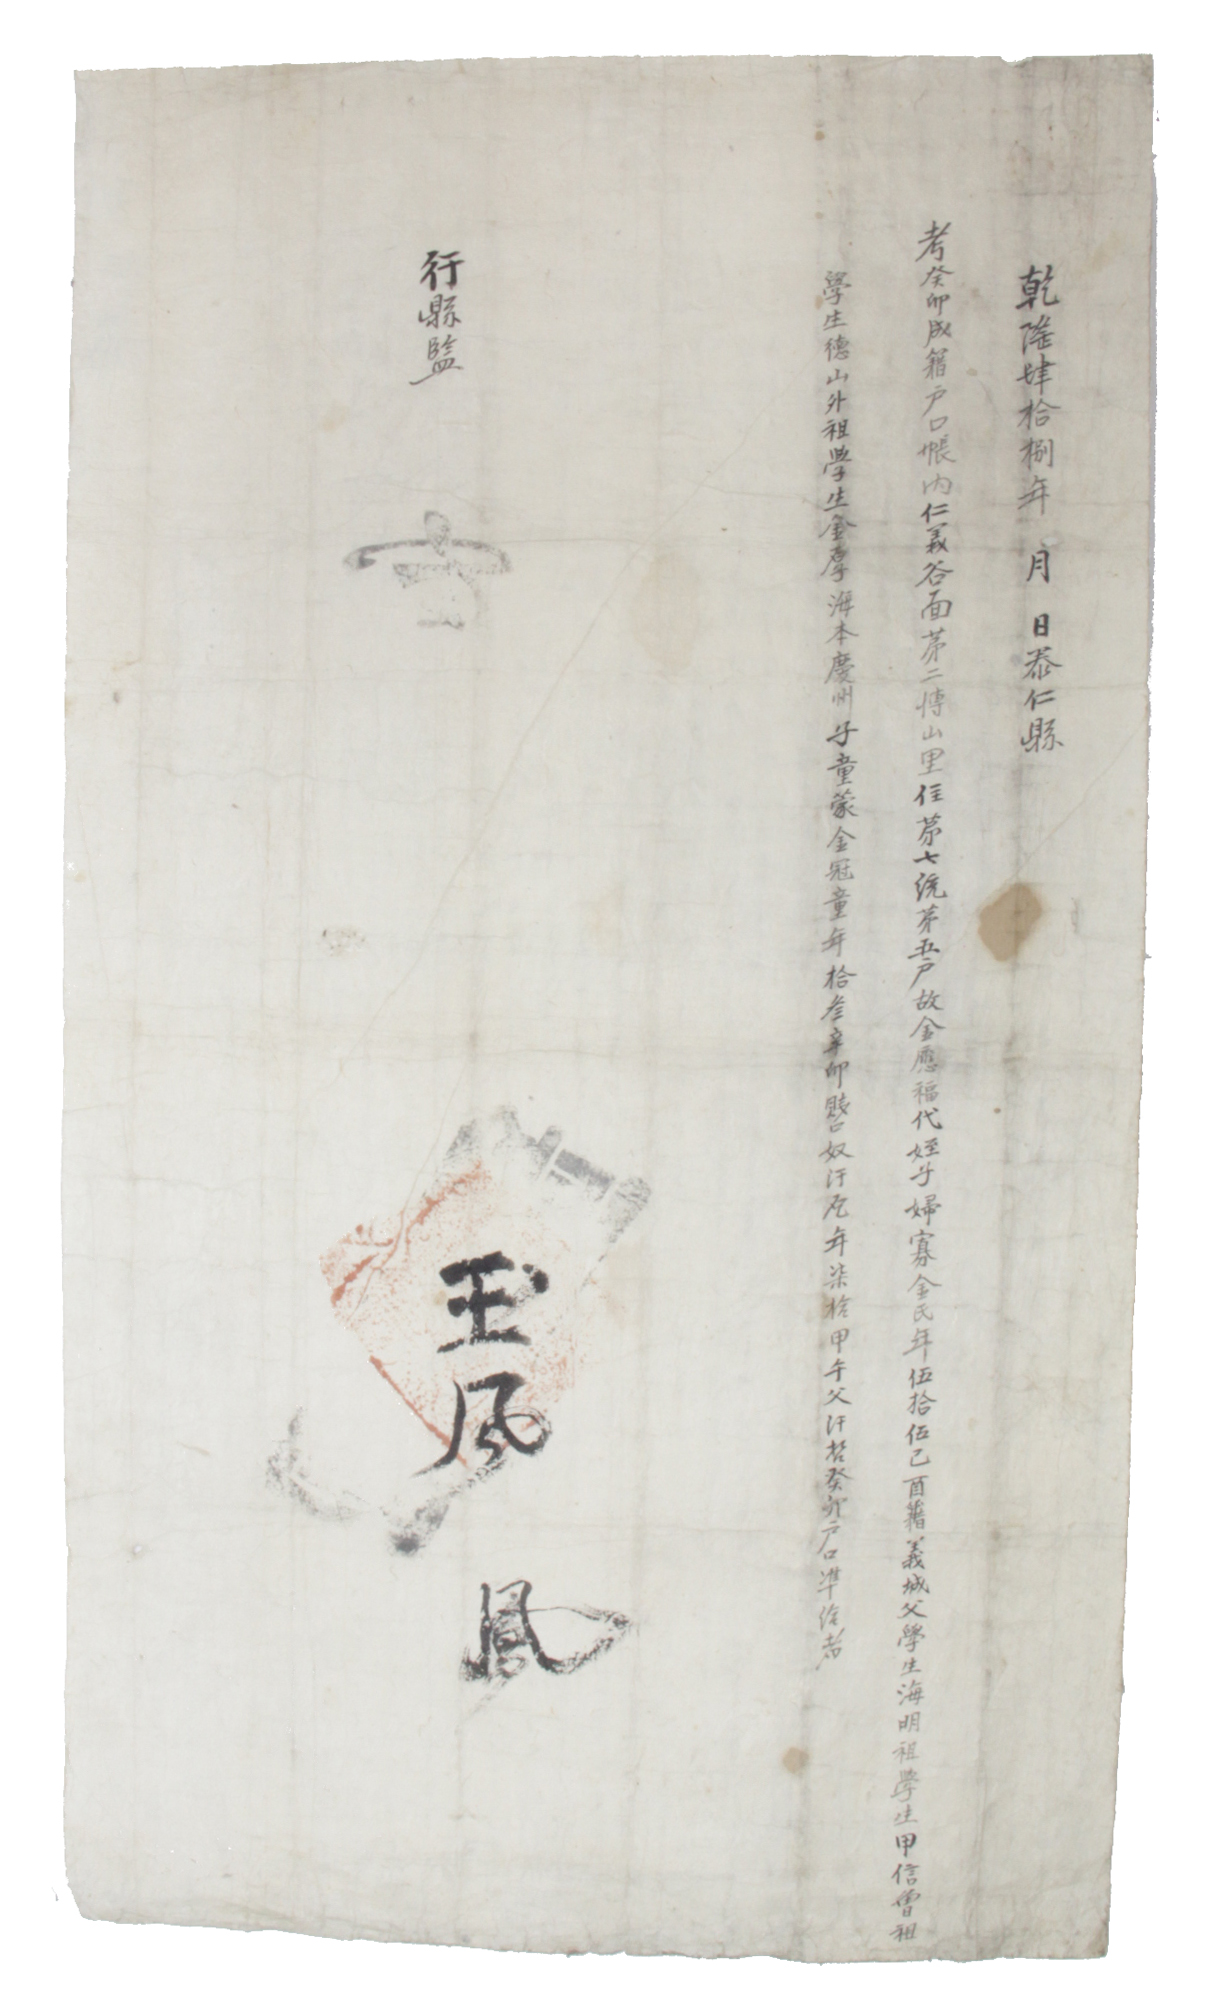 乾隆肆拾捌年 月 日泰仁縣
考癸卯成籍戶口帳內仁義谷面第二博山里住第七統第五戶故金應福代姪子婦寡金氏年伍拾伍己酉籍義城父學生海明祖學生甲信曾祖
學生德山外祖學生金厚海本慶州子童蒙金冠童年拾參辛卯賤口奴汗尨年柒拾甲午父汗哲癸卯戶口準給者
行縣監